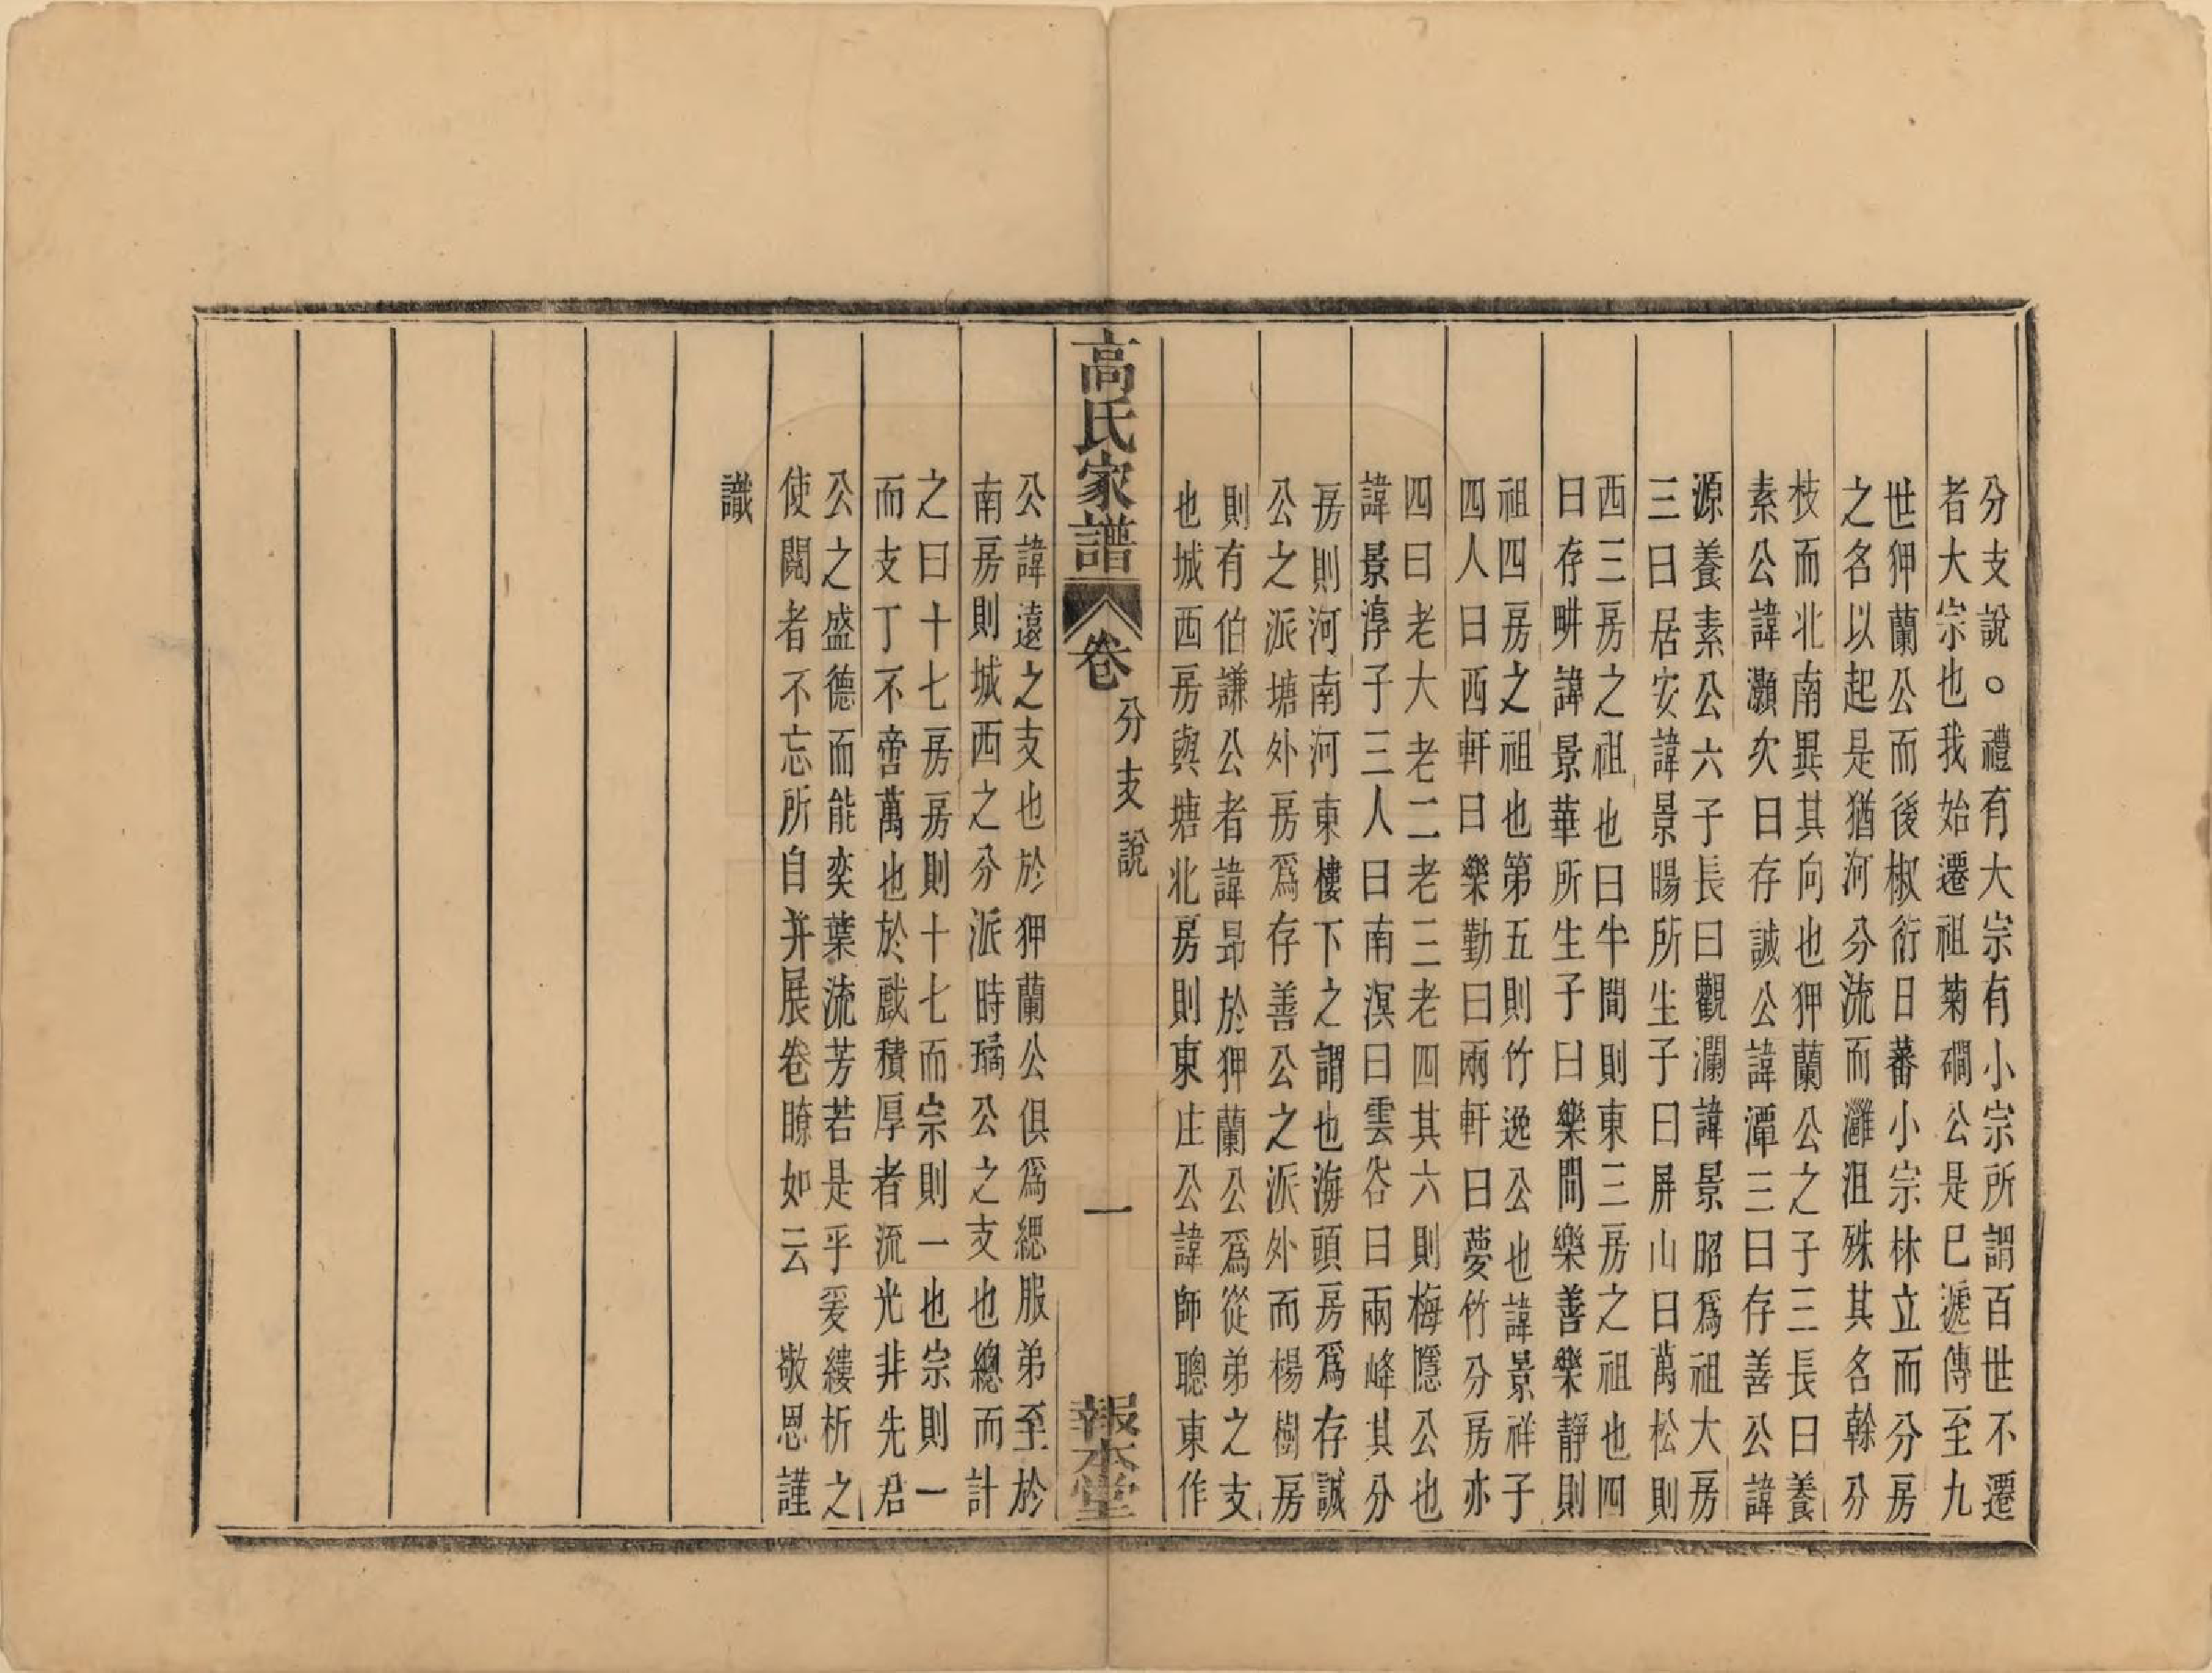 分支說○禮有大宗有小宗所謂百世不遷
者大宗也我始遷祖菊磵公是已遞傳至九
世狎蘭公而後椒衍日蕃小宗林立而分房
之名以起是猶河分流而灉沮殊其名榦分
枝而北南異其向也狎蘭公之子三長曰養
素公諱灝次曰存誠公諱潭三曰存善公諱
源養素公六子長曰觀瀾諱景昭爲祖大房
三曰居安諱景暘所生子曰屏山曰萬松則
西三房之祖也曰牛間則東三房之祖也四
曰存畊諱景華所生子曰樂間樂善樂靜則
祖四房之祖也第五則竹逸公也諱景祥子
四人曰西軒曰樂勤曰兩軒曰夢竹分房亦
四曰老大老二老三老四其六則梅隱公也
諱景淳子三人曰南溟曰雲谷曰兩峰其分
房則河南南河東樓下之謂也海頭房爲存誠
公之派塘外房爲存善公之派外而楊樹房
則有伯謙公者諱昻於狎蘭公爲從弟之支
也城西房與塘北房則東庄公諱師聰東作
高氏家譜
卷
分支說
一
報本堂
公諱遠之支也於狎蘭公俱爲緦服弟至於
南房則城西之分派時璚公之支也總而計
之曰十七房房則十七而宗則一也宗則一
而支丁不啻萬也於戲積厚者流光非先君
公之盛德而能奕葉流芳若是乎爰縷析之
使閱者不忘所自幷展卷瞭如云 敬恩謹
識